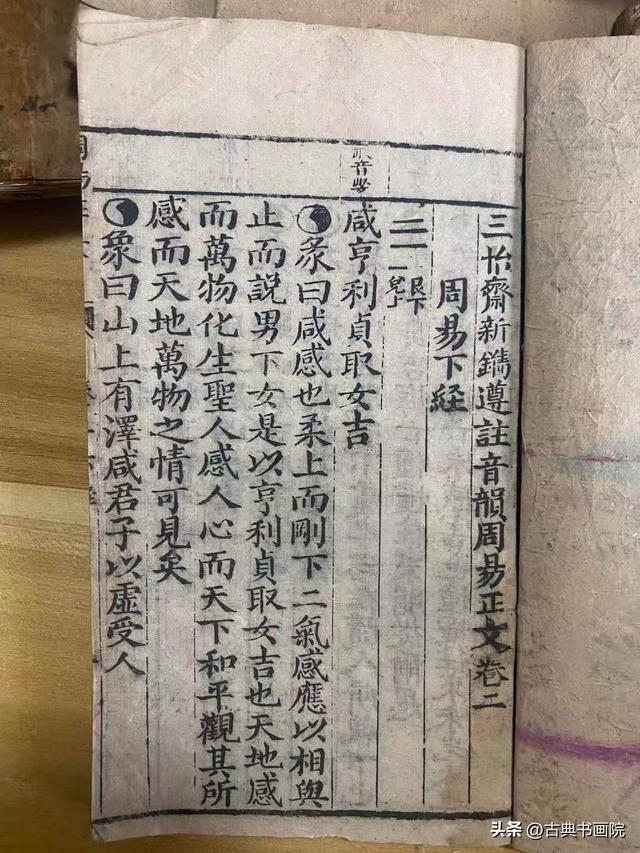 三怡齋新鐫遵註音韻周易正文卷二
周易下経
艮下
兌上
咸亨利貞取女吉
彖曰咸感也柔上而剛下二氣感應以相與
止而説男下女是以亨利貞取女吉也天地感
而萬物化生聖人感人心而天下和平觀其所
感而天地萬物之情可見矣
象曰山上有澤咸君子以虛受人
头条 @古典书画院